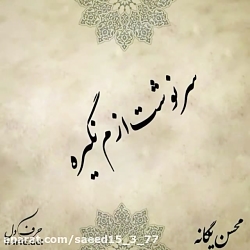 سرنوشت ازم نگیره
محسن یگانه
حرف دل
aparat.com/saeed15_3_77